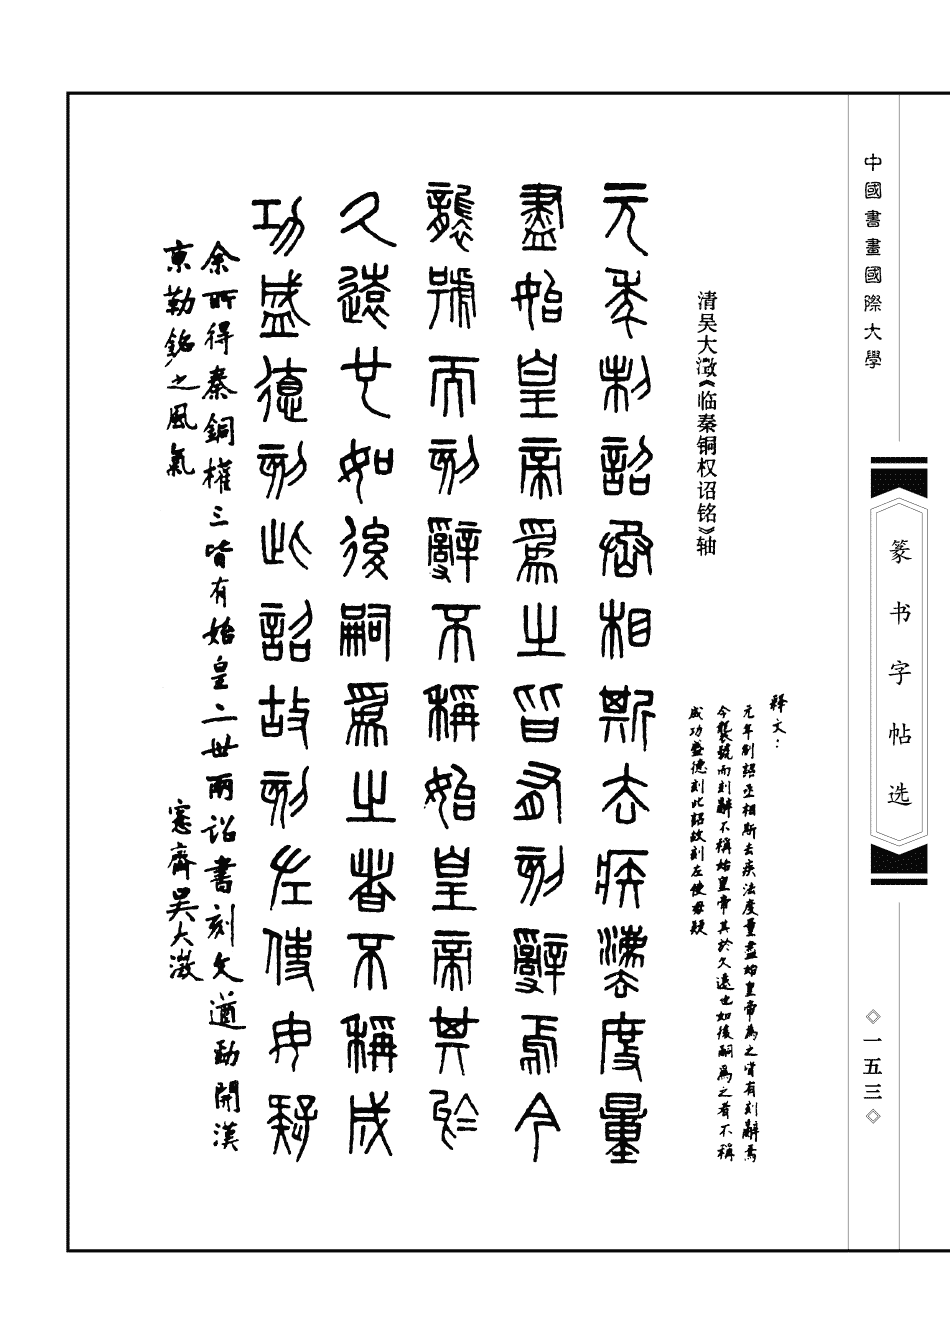 中國書畫國際大學
篆书字帖选
◇一五三◇
释文：
元年制詔丞相斯去疾法度量盡始皇帝為之皆有刻辭焉
今襲號而刻辭不稱始皇帝其於久遠也如後嗣爲之者不稱
成功盛德刻此詔故刻左使毋疑
清吴大澂《临秦铜权诏铭》轴
元年制詔丞相斯去疾灋度量
盡始皇帝爲之皆有刻辭焉今
襲號而刻辭不稱始皇帝其於
久遠也如後嗣爲之者不稱成
功盛德刻此詔故刻左使毋疑
余所得秦銅權三皆有始皇二世兩詔書刻文遒勁開漢
京勒銘之風氣 愙齋吳大澂